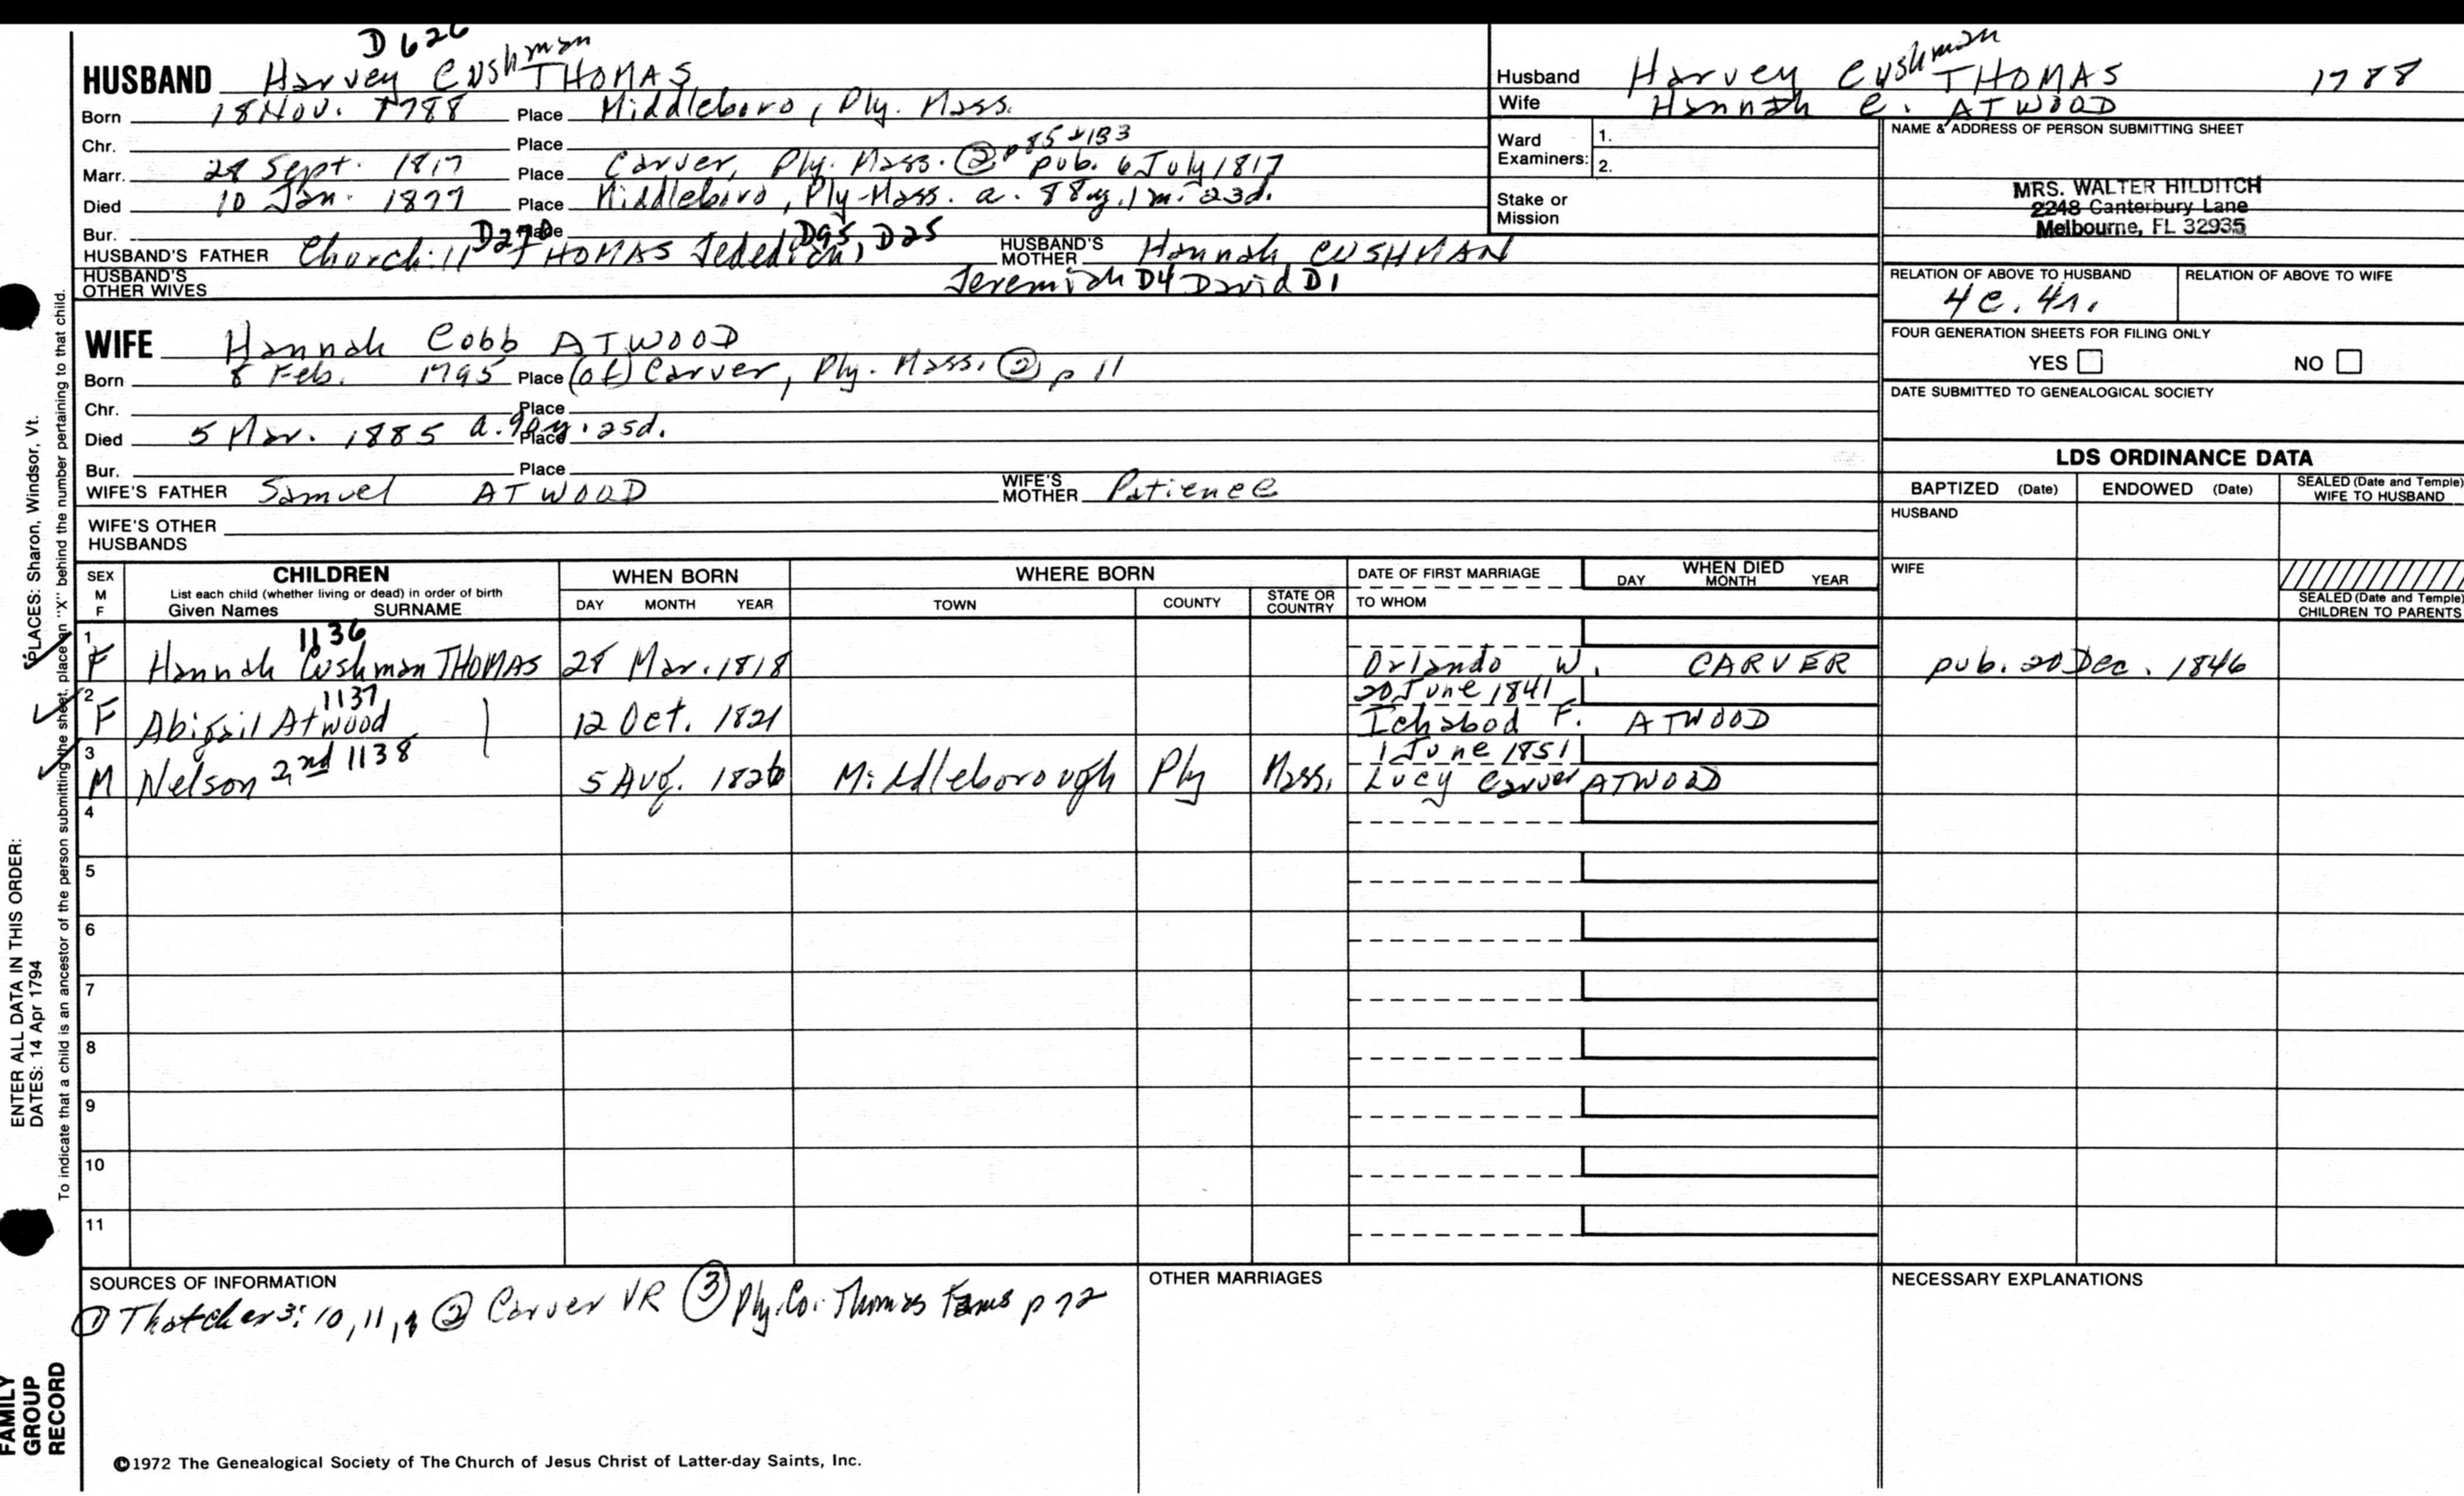 D626
HUSBAND Harvey Cushman THOMAS
Born 18 Nov. 1788 Place Middleboro, Ply. Mass.
Chr. Place
Marr. 28 Sept. 1817 Place Carver, Ply. Mass. ② p 85+133 pub. 6 July 1817
Died 10 Jan. 1877 Place Middleboro, Ply-Mass. a. 88y. 1m. 23d.
Bur. Place
HUSBAND'S FATHER Churchill D270 THOMAS Jedediah D95, D25 HUSBAND'S MOTHER Hannah CUSHMAN
HUSBAND'S OTHER WIVES Jeremiah D4 David D1
WIFE Hannah Cobb ATWOOD
Born 8 Feb. 1795 Place (of) Carver, Ply. Mass. ② p 11
Chr. Place
Died 5 Mar. 1885 a. 90y. 25d. Place
Bur. Place
WIFE'S FATHER Samuel ATWOOD WIFE'S MOTHER Patience
WIFE'S OTHER HUSBANDS
Husband Harvey Cushman THOMAS 1788
Wife Hannah C. ATWOOD
Ward Examiners: 1.
2.
Stake or Mission
NAME & ADDRESS OF PERSON SUBMITTING SHEET
MRS. WALTER HILDITCH
2248 Canterbury Lane
Melbourne, FL 32935
RELATION OF ABOVE TO HUSBAND RELATION OF ABOVE TO WIFE
4c. 4r.
FOUR GENERATION SHEETS FOR FILING ONLY
YES NO
DATE SUBMITTED TO GENEALOGICAL SOCIETY
LDS ORDINANCE DATA
BAPTIZED (Date) ENDOWED (Date) SEALED (Date and Temple) WIFE TO HUSBAND
HUSBAND
WIFE
SEALED (Date and Temple) CHILDREN TO PARENTS
SEX M F CHILDREN WHEN BORN WHERE BORN DATE OF FIRST MARRIAGE WHEN DIED
List each child (whether living or dead) in order of birth
Given Names SURNAME DAY MONTH YEAR TOWN COUNTY STATE OR COUNTRY TO WHOM DAY MONTH YEAR
1 1136
F Hannah Cushman THOMAS 28 Mar. 1818 Orlando W. CARVER pub. 20 Dec. 1846
2 1137 20 June 1841
F Abigail Atwood 12 Oct. 1821 Ichabod F. ATWOOD
3 1 June 1851
M Nelson 2nd 1138 5 Aug. 1826 Middleborough Ply Mass. Lucy Carver ATWOOD
4
5
6
7
8
9
10
11
SOURCES OF INFORMATION OTHER MARRIAGES NECESSARY EXPLANATIONS
① Thatcher 3: 10, 11, ② Carver VR ③ Ply. Co. Thomas Fams p 72
©1972 The Genealogical Society of The Church of Jesus Christ of Latter-day Saints, Inc.
ENTER ALL DATA IN THIS ORDER:
DATES: 14 Apr 1794 PLACES: Sharon, Windsor, Vt.
To indicate that a child is an ancestor of the person submitting the sheet, place an "X" behind the number pertaining to that child.
FAMILY GROUP RECORD